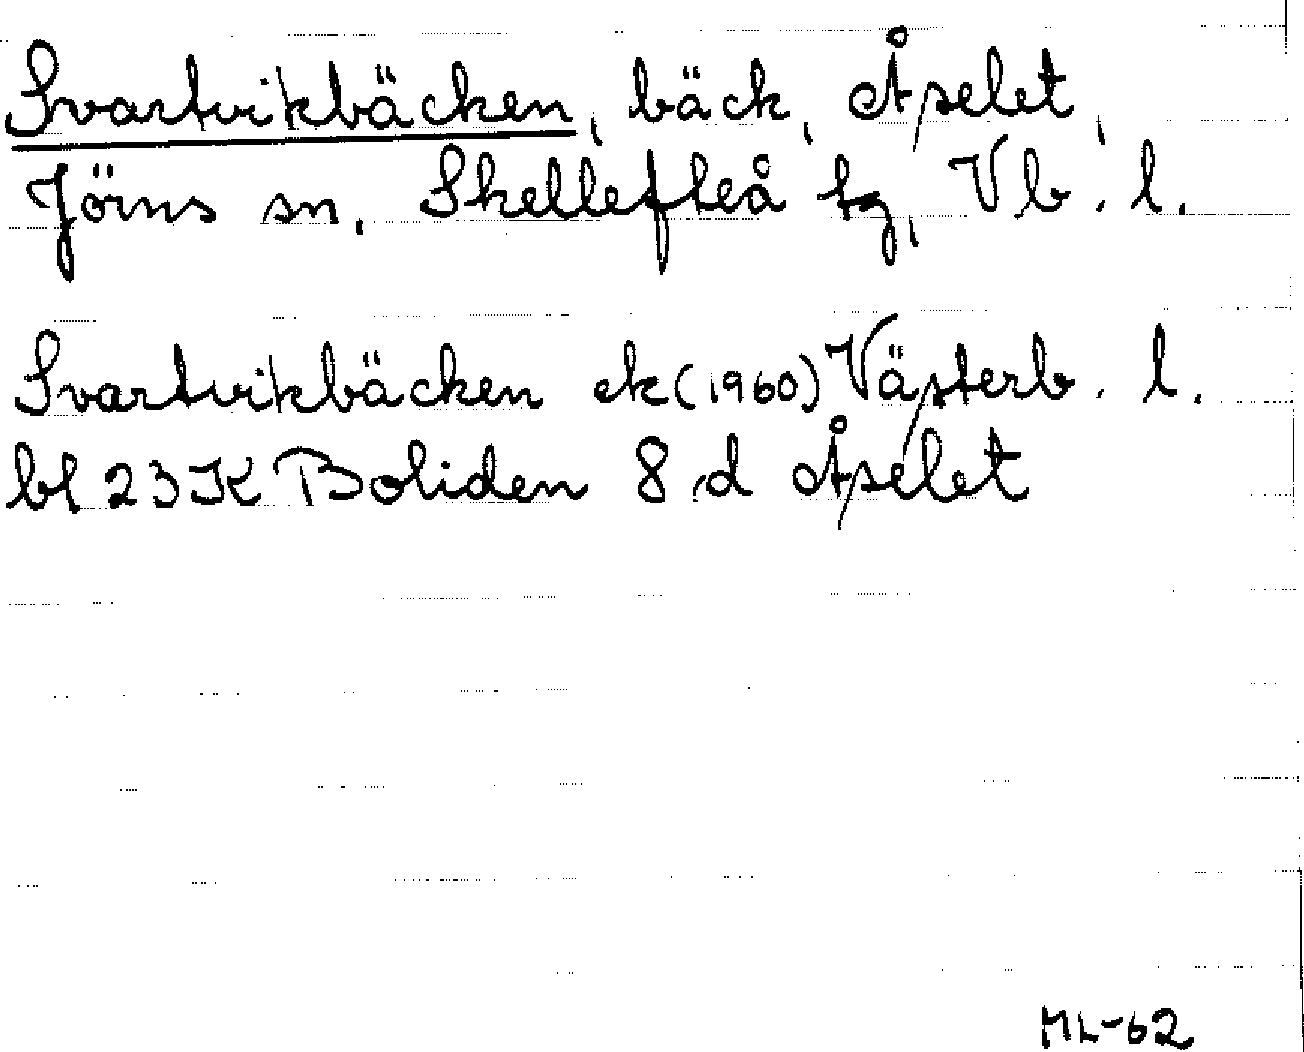 Svartvikbäcken, bäck, Åselet,
Jörns sn, Skellefteå tg, Vb. l.
Svartvikbäcken ek (1960) Västerb. l.
bl 23K Boliden 8 d Åselet
ML-62